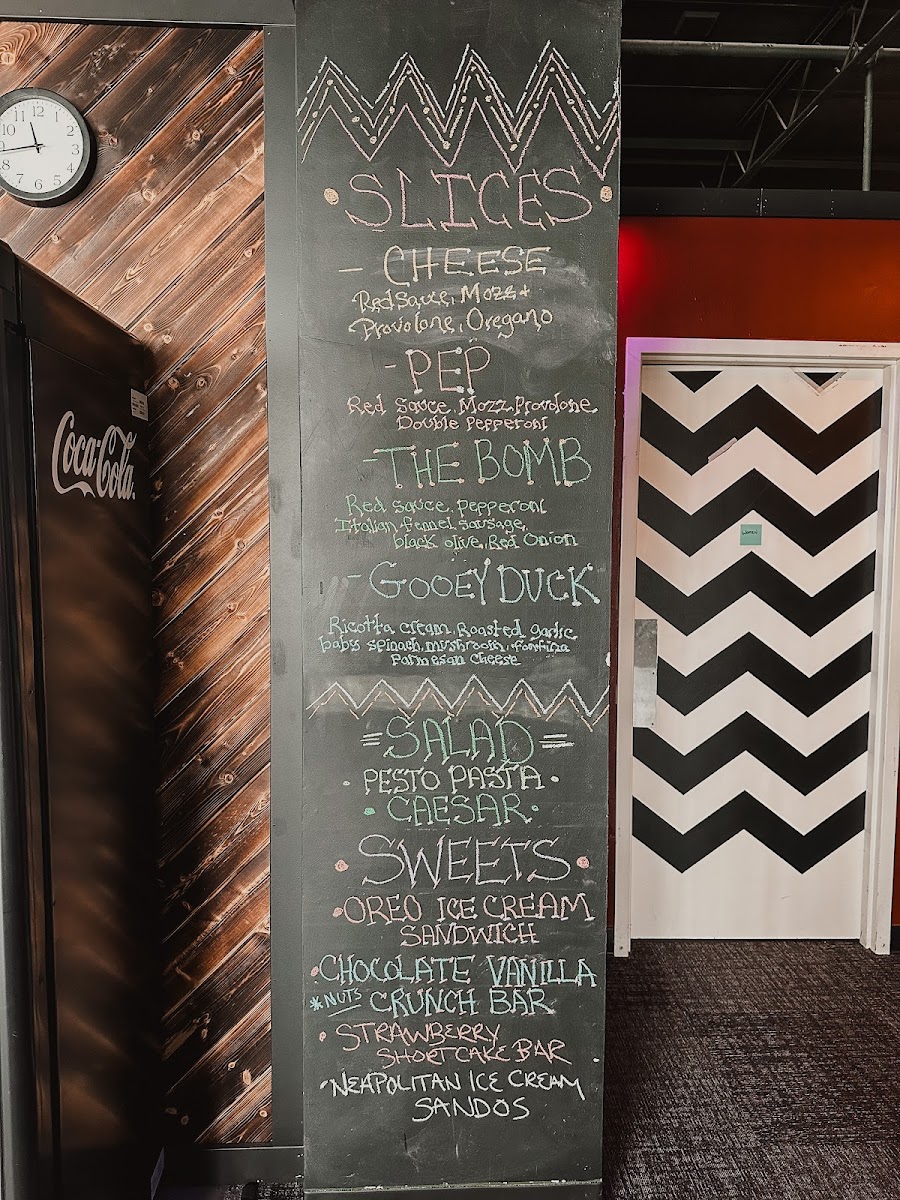 11 12 1
10 2
3
8 4
7 6 5
Coca-Cola
• SLICES •
- CHEESE
Red Sauce, Mozz +
Provolone, Oregano
- PEP
Red Sauce, Mozz, Provolone,
Double Pepperoni
- THE BOMB
Red sauce, pepperoni
Italian fennel sausage,
black olive, Red Onion
- GOOEY DUCK
Ricotta cream, Roasted garlic
baby spinach, mushroom, fontina
Parmesan Cheese
= SALAD =
• PESTO PASTA •
• CAESAR •
• SWEETS •
• OREO ICE CREAM
SANDWICH
• CHOCOLATE VANILLA
*NUTS CRUNCH BAR
• STRAWBERRY
SHORTCAKE BAR
• NEAPOLITAN ICE CREAM
SANDOS
WOMEN